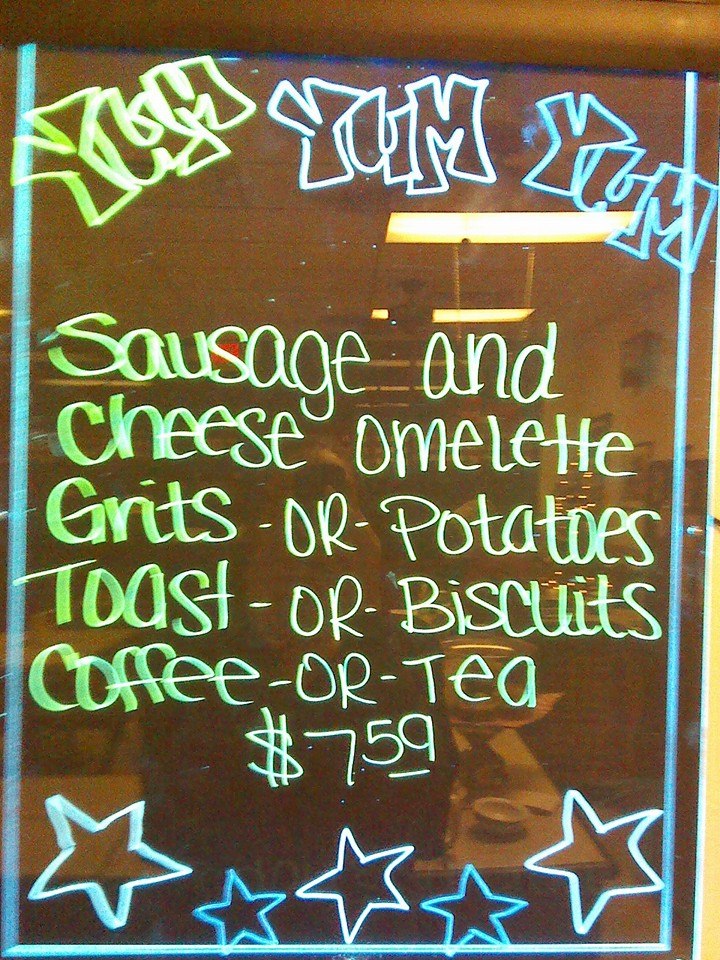 YUM YUM YUM
Sausage and
Cheese omelette
Grits -OR- Potatoes
Toast -OR- Biscuits
Coffee -OR- Tea
$7.59